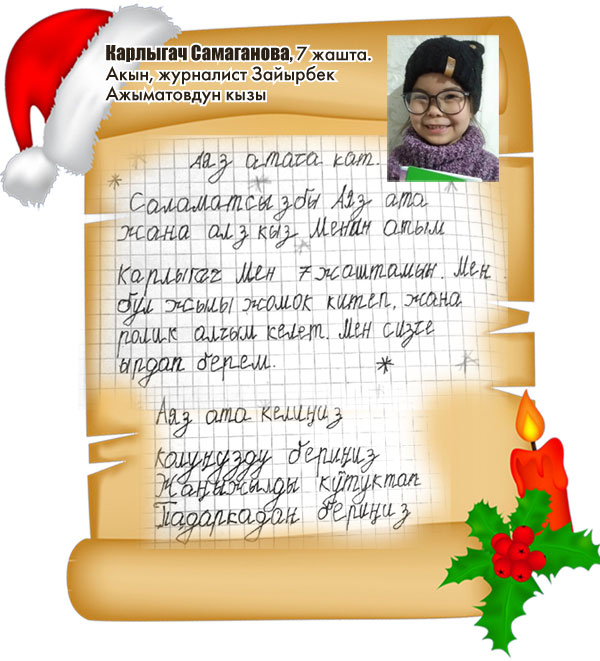 Карлыгач Самаганова, 7 жашта.
Акын, журналист Зайырбек
Ажыматовдун кызы
Аяз атага кат.
Саламатсызбы Аяз ата
жана аяз кыз Менин атым
Карлыгач Мен 7 жаштамын. Мен
бул жылы жомок китеп, жана
ролик алгым келет. Мен сизге
ырдап берем.
Аяз ата келиңиз
колуңузду бериңиз
Жаңыжылды куттуктап
Падаркадан бериңиз